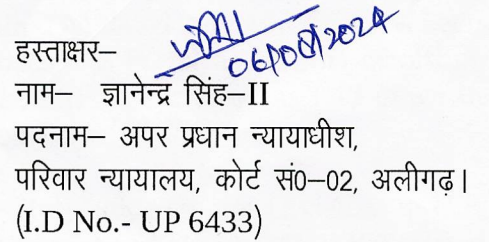 हस्ताक्षर–
06/08/2024
नाम– ज्ञानेन्द्र सिंह–II
पदनाम– अपर प्रधान न्यायाधीश,
परिवार न्यायालय, कोर्ट सं0–02, अलीगढ़।
(I.D No.- UP 6433)